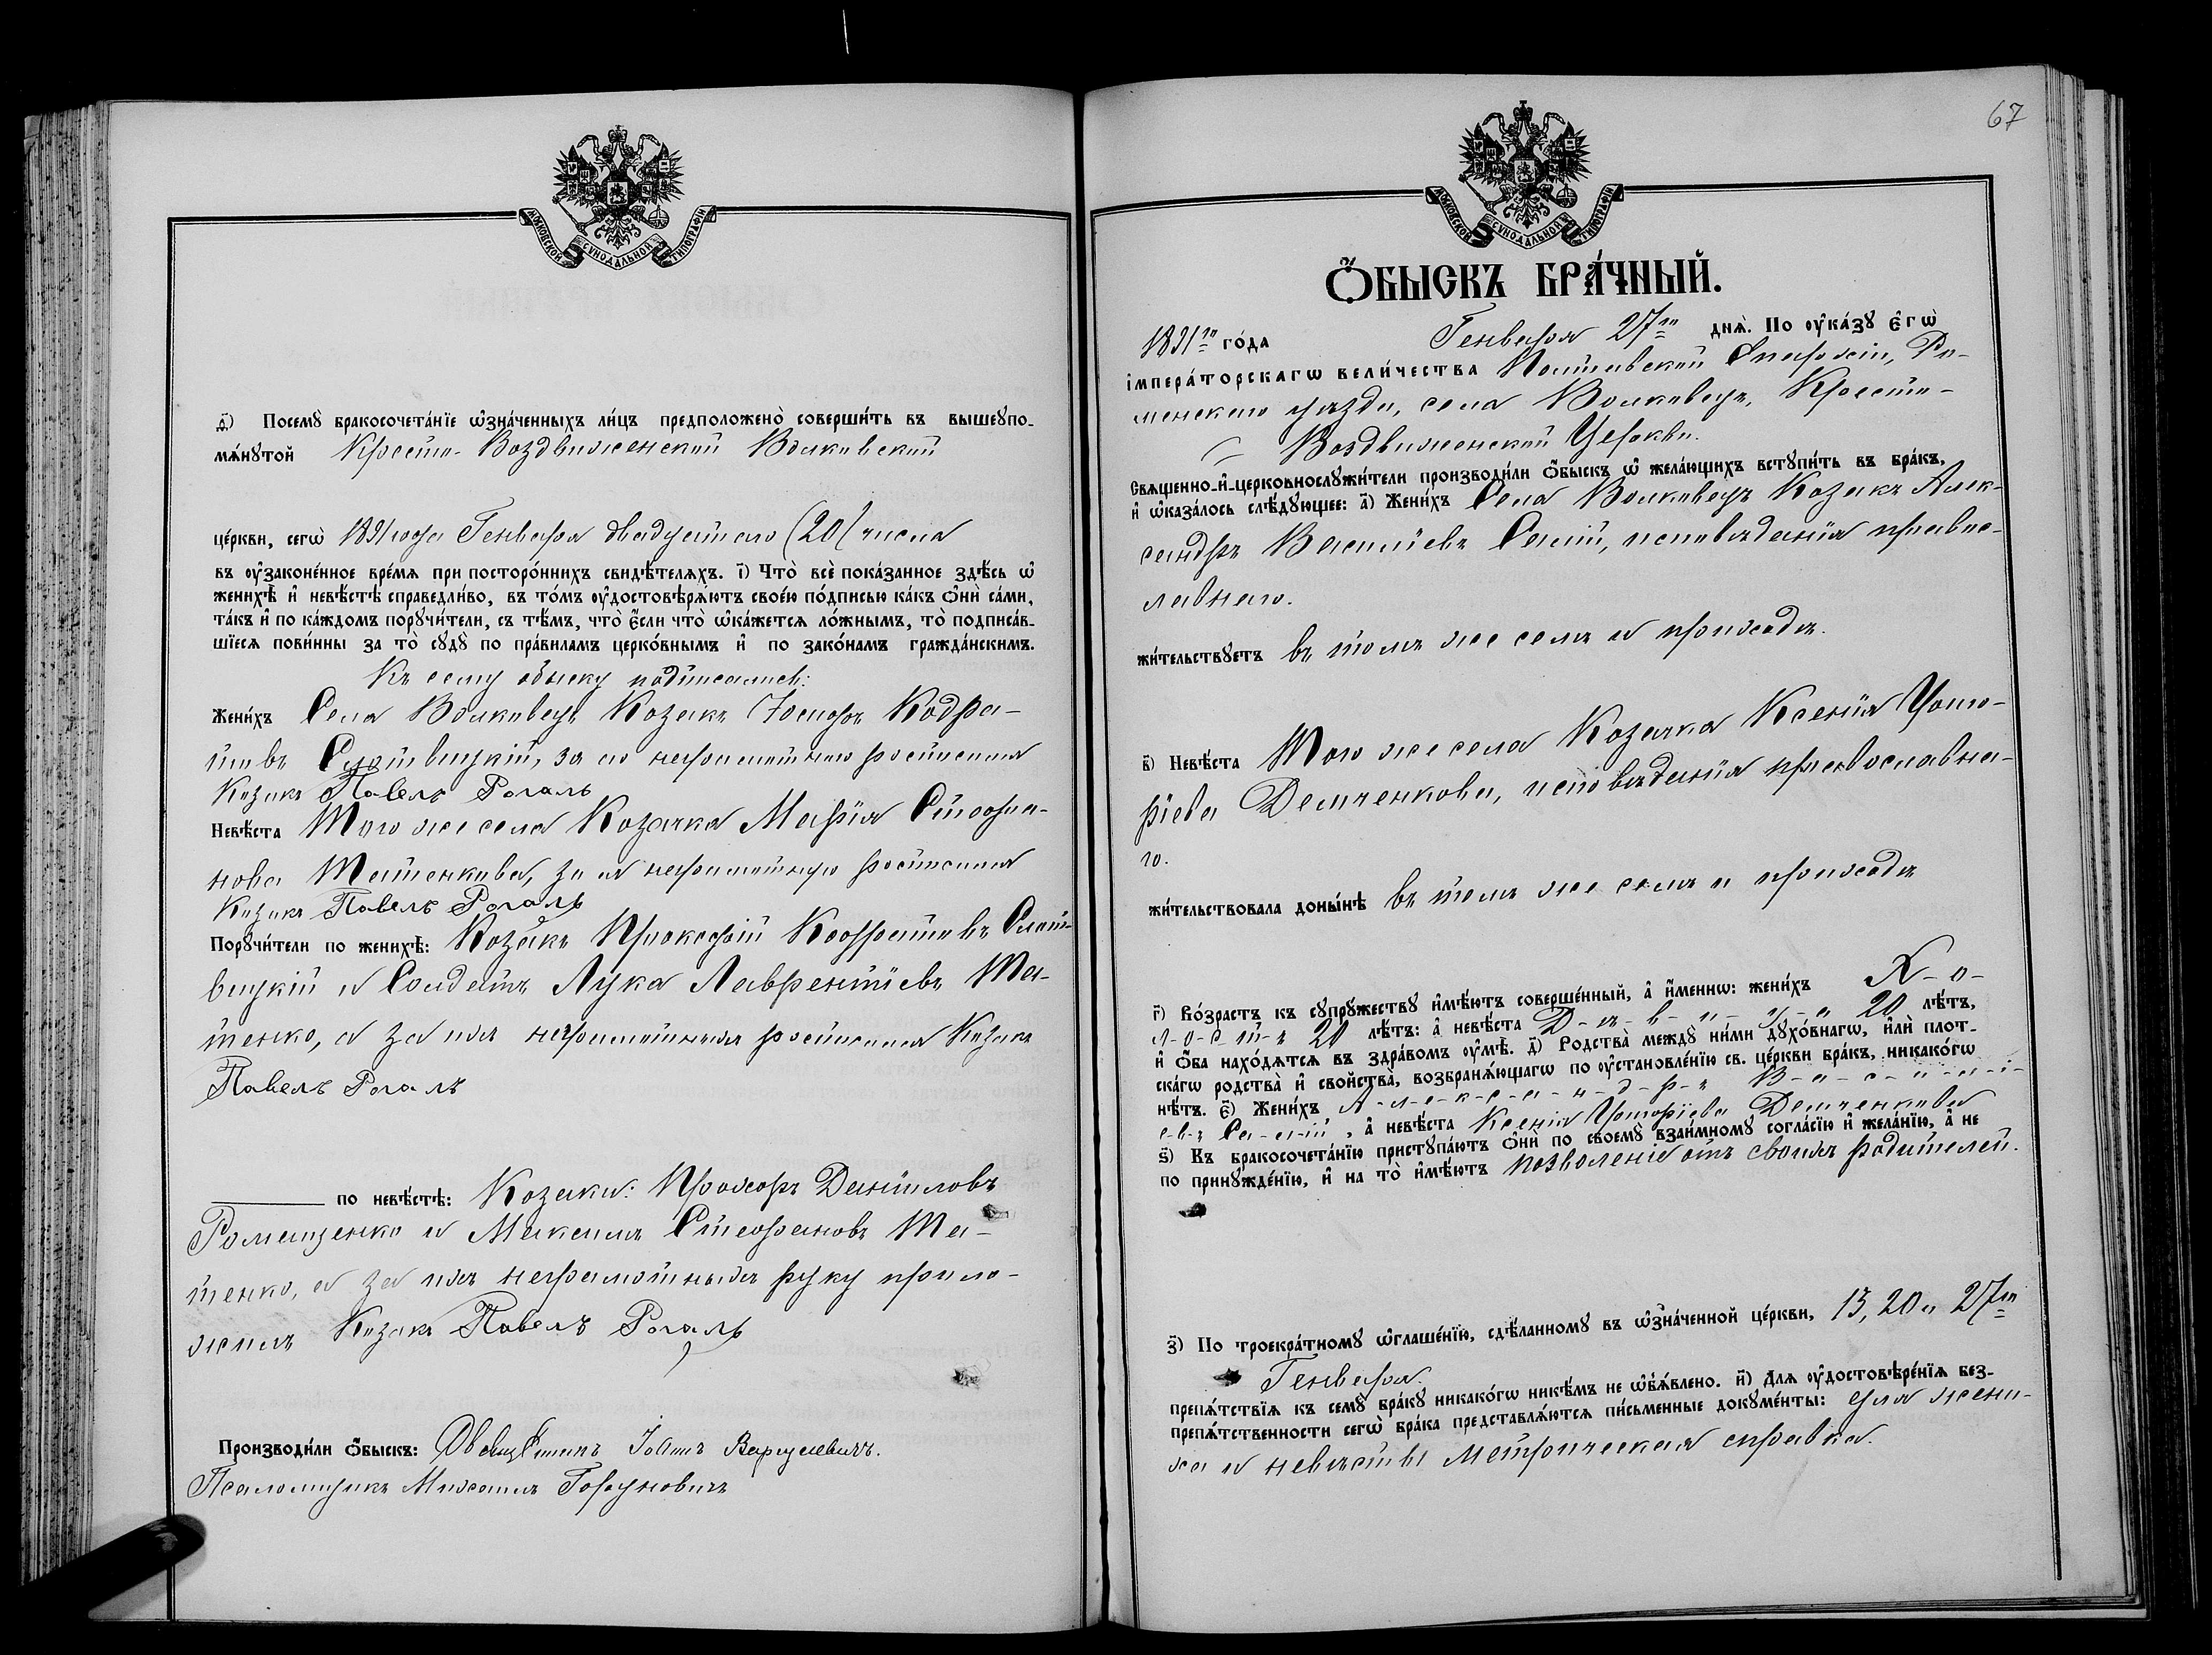 МОСКОВСКОЙ СѴНОДАЛЬНОЙ ТИПОГРАФІИ
д҃і) Посемꙋ бракосочета́нїе ѡ҆зна́ченныхъ ли́цъ предположено̀ соверши́ть въ вышеꙋпо-
мѧ́нꙋтой Кресто-Воздвиженской Волковской
це́ркви, сегѡ̀ 1891 года Генваря двадцатого (20( числа
въ ᲂу҆законе́нное вре́мѧ при посторо́ннихъ свидѣ́телѧхъ. і҃) Что̀ всѐ пока́занное здѣ́сь ѡ҆
женихѣ̀ и҆ невѣ́стѣ справедли́во, въ то́мъ ᲂу҆достовѣрѧ́ютъ свое́ю по́дписью ка́къ ѻ҆нѝ са́ми,
та́къ и҆ по ка́ждомъ порꙋчи́тели, съ тѣ́мъ, что̀ є҆́сли что̀ ѡ҆ка́жетсѧ ло́жнымъ, то̀ подписа́в-
шїесѧ пови́нны за то̀ сꙋдꙋ̀ по пра́виламъ церко́внымъ и҆ по зако́намъ гражда́нскимъ.
Къ сему обыску подписались:
Жени́хъ Села Волковецъ Козакъ
за него неграмотного росписался
Козакъ Павелъ Рогаль
Невѣ́ста Того же села Козачка Марія Стефа-
нова Татенкова, за я неграмотную росписался
Козакъ Павелъ Рогаль
Порꙋчи́тели по женихѣ̀: Козакъ Прокофій Кодратовъ
и Солдатъ Лука Лаврентіевъ Та-
тенко, а за нихъ неграмотныхъ росписался Козакъ
Павелъ Рогаль
по невѣ́стѣ: Козаки: Прохоръ Даніиловъ
Ромащенко и Максимъ Стефановъ Та-
тенко, а за нихъ неграмотныхъ руку прило-
жилъ Козакъ Павелъ Рогаль
Производи́ли ѻ҆́быскъ: Іоаннъ
Псаломщикъ Михаилъ Гордуновичъ
67
МОСКОВСКОЙ СѴНОДАЛЬНОЙ ТИПОГРАФІИ
Ѻ҆́БЫСКЪ БРА́ЧНЫЙ.
1891го го́да Генваря 27го днѧ̀. По ᲂу҆ка́зꙋ є҆гѡ̀
і҆мпера́торскагѡ вели́чества Полтавской Епархіи, Ро-
менского уѣзда, села Волковецъ, Кресто-
Воздвиженской Церкви.
Свѧщенно-и҆-церковнослꙋжи́тели производи́ли ѻ҆́быскъ ѡ҆ жела́ющихъ встꙋпи́ть въ бра́къ,
и҆ ѡ҆каза́лось слѣ́дꙋющее: а҃) Жени́хъ Села Волковецъ Козакъ Алек-
сандръ Василіевъ исповѣданія право-
лавного.
жи́тельствꙋетъ въ томъ же селѣ и приходѣ.
в҃) Невѣ́ста Того же села Козачка Ксенія
Демченкова, исповѣданія православна-
го.
жи́тельствовала доны́нѣ въ томъ же селѣ и приходѣ
г҃) Во́зрастъ къ сꙋпрꙋ́жествꙋ и҆мѣ́ютъ соверше́нный, а҆ и҆́меннѡ: жени́хъ Х-о-
л-о-с-т-ъ 20 лѣ́тъ: а҆ невѣ́ста Д-ѣ-в-и-ц-а 20 лѣ́тъ,
и҆ ѻ҆́ба нахо́дѧтсѧ въ здра́вомъ ᲂу҆мѣ̀. д҃) Родства̀ междꙋ ни́ми дꙋхо́внагѡ, и҆лѝ плот-
ска́гѡ родства̀ и҆ сво́йства̀, возбранѧ́ющагѡ по ᲂу҆становле́нїю св. це́ркви бра́къ, никако́гѡ
нѣ́тъ. є҃) Жени́хъ А-л-е-к-с-а-н-д-р-ъ В-а-с-и-л-і-
е-в-ъ, а҆ невѣ́ста Ксенія Демченкова
ѕ҃) Къ бракосочета́нїю пристꙋпа́ютъ ѻ҆нѝ по своемꙋ̀ взаи́мномꙋ согла́сїю и҆ жела́нїю, а҆ не
по принꙋжде́нїю, и҆ на то̀ и҆мѣ́ютъ позволеніе отъ своихъ родителей.
з҃) По троекра́тномꙋ ѡ҆глаше́нїю, сдѣ́ланномꙋ въ ѡ҆зна́ченной це́ркви, 13, 20 и 27го
Генваря.
препѧ́тствїѧ къ семꙋ̀ бра́кꙋ никако́гѡ никѣ́мъ не ѡ҆б̾ѧ́влено. и҃) Длѧ ᲂу҆достовѣре́нїѧ без-
препѧ́тственности сегѡ̀ бра́ка представлѧ́ютсѧ пи́сьменные докꙋме́нты: для жени-
ха и невѣсты Метрическая справка.